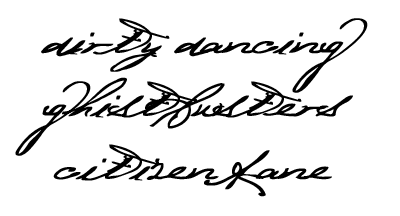 dirty dancing
ghistbusters
citizen kane